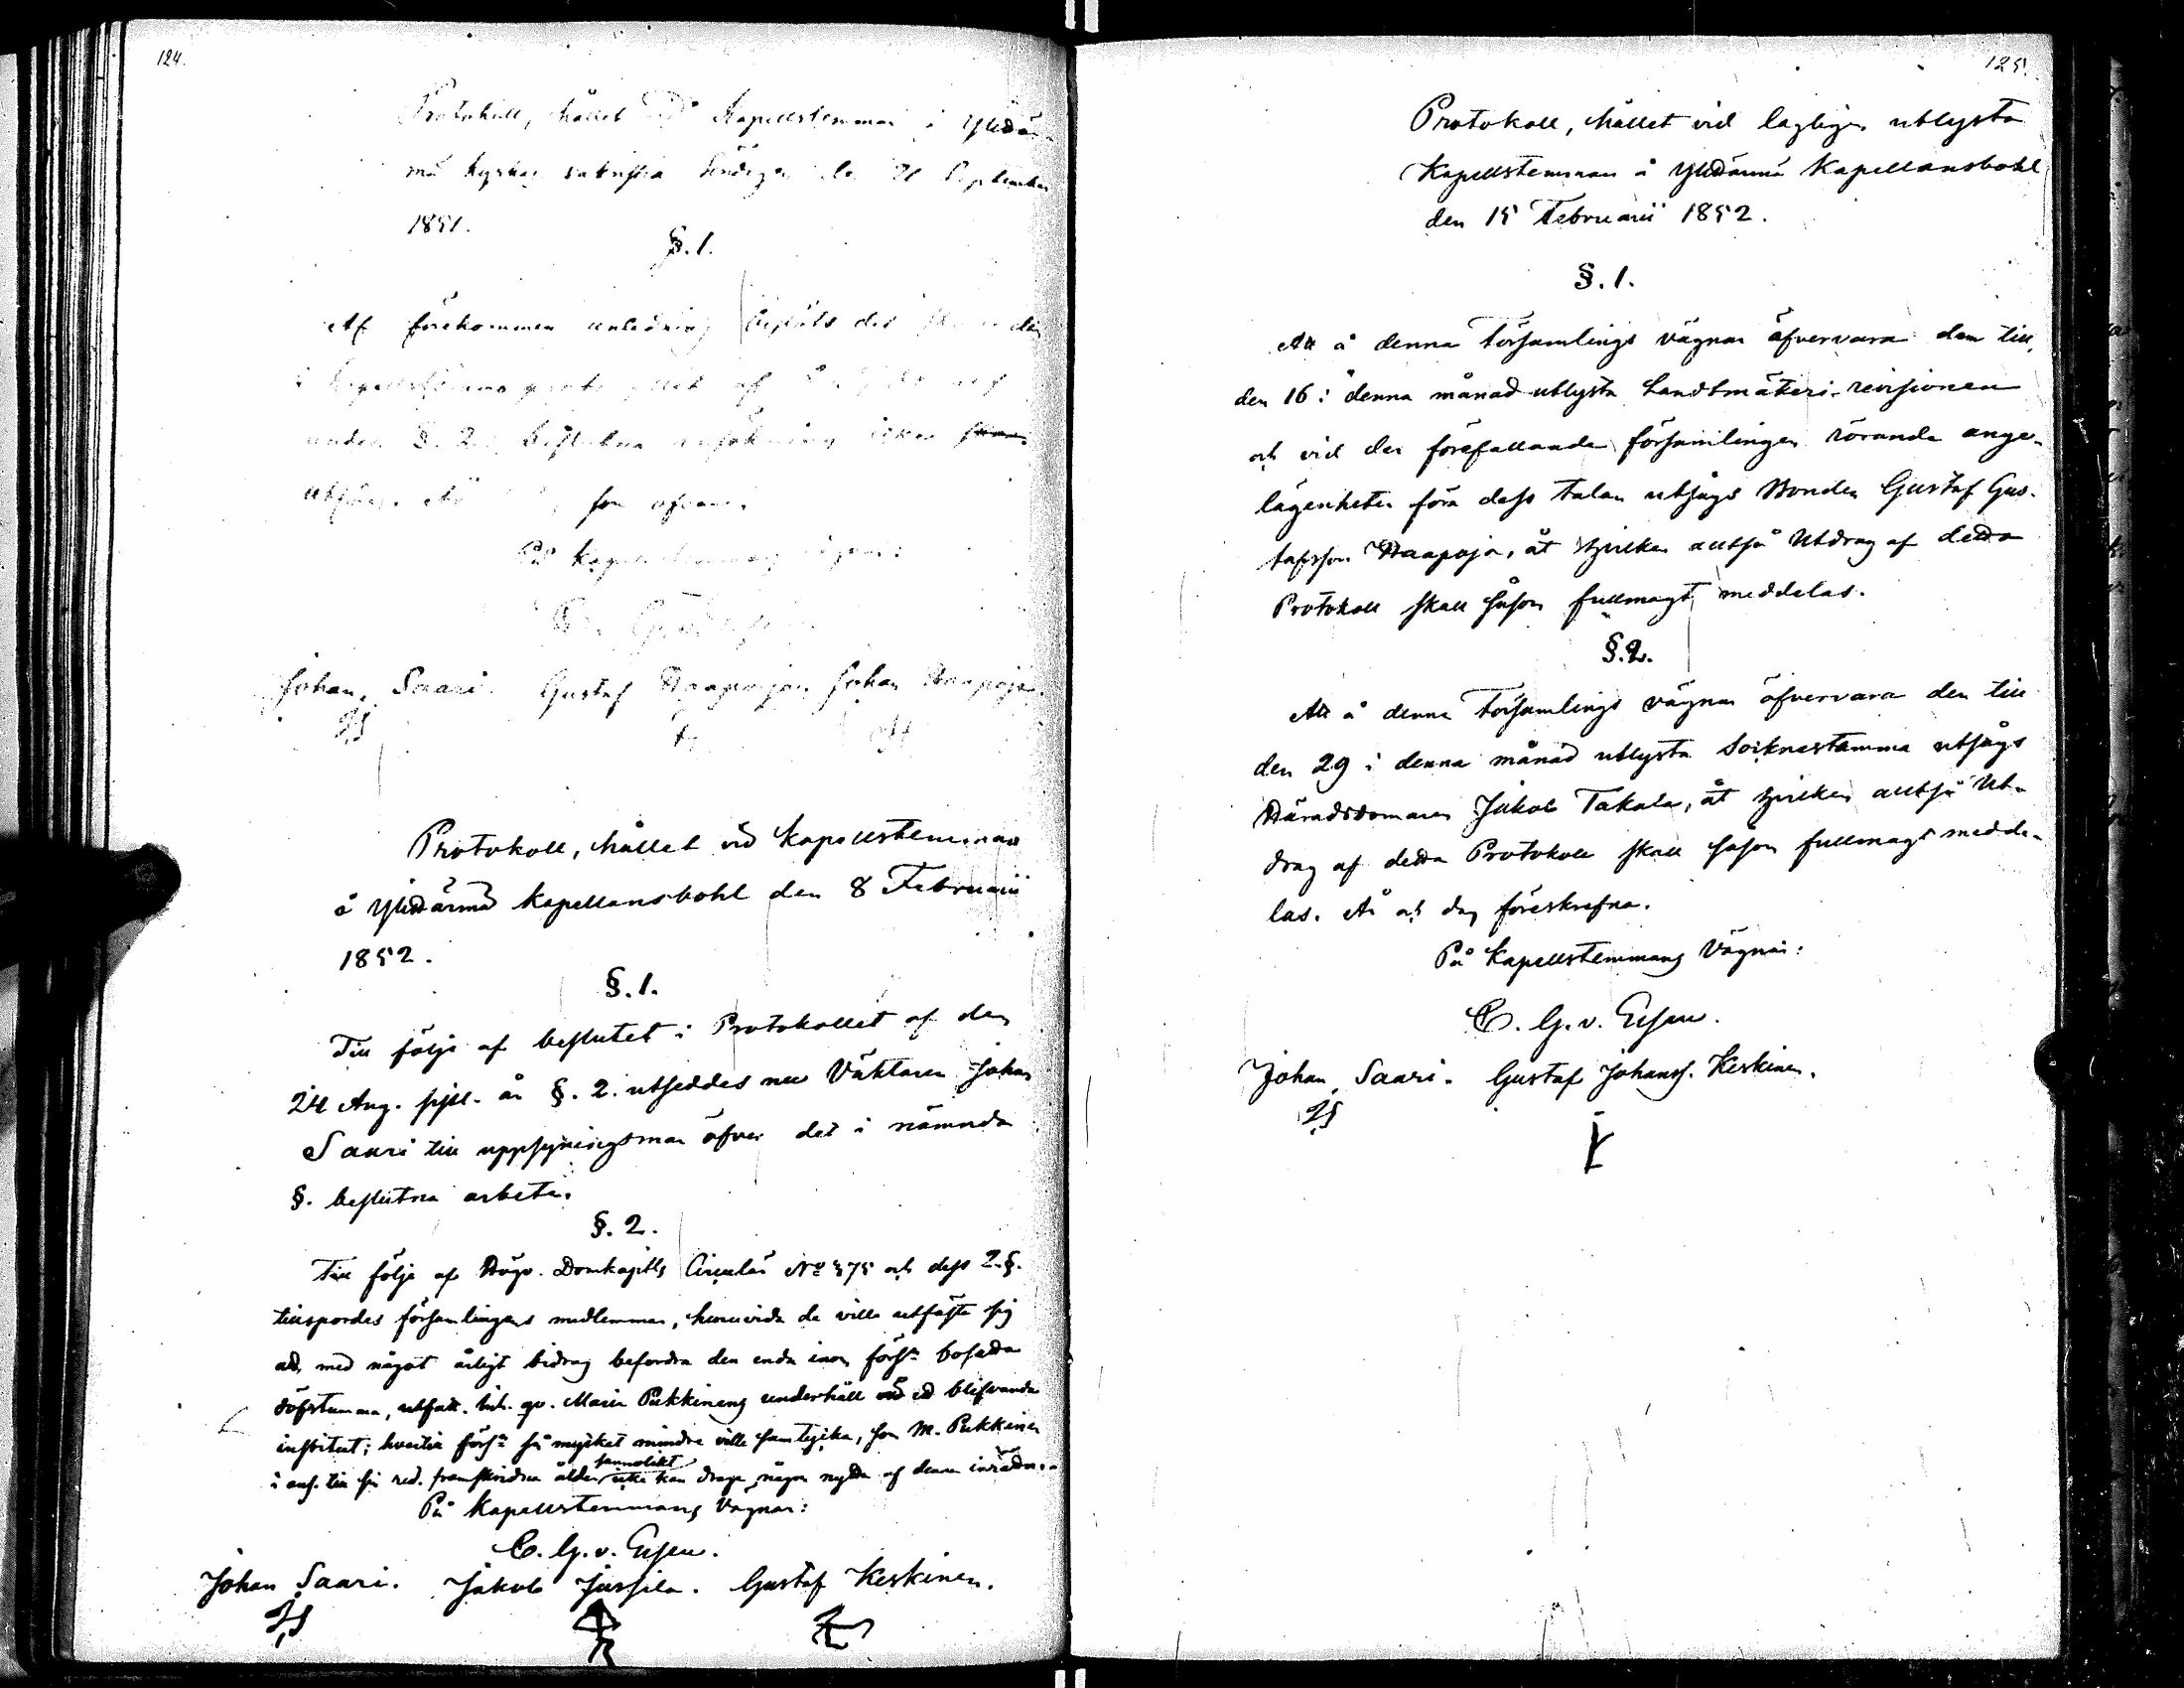 124.
Protokoll, hållet vid Kapellstemman i Ylihär-
mä kyrkas sakristia Söndagen den 21 September
1851.
§. 1.
Af förekommen anledning beslöts det
i Kapellstämmo
under §. 2. beslutna ansökning icke
som ofvan.
På Kapellstemmans vägnar:
Johan Saari. Gustaf Haapoja. Johan Haapoja.
Protokoll, hållet vid Kapellstemman
å Ylihärmä Kapellansbohl den 8 Februarii
1852.
§. 1.
Till följe af beslutet i Protokollet af den
24 Aug. sistl. år §. 2. utseddes nu Väktaren Johan
Saari till uppsyningsman öfver det i nämnda
§. beslutna arbete.
§. 2.
Till följe af Högv. Domkapitls Circulär No 375 och dess 2 §.
tillspordes församlingens medlemmar, huruvida de ville utfästa sig
att med något årligt bidrag befordra den enda inom förs:n bosatta
döfstumma, utfatt. inh. qv. Maria Pukkinens underhåll vid ett blifvande
institut; hvartill förs:n så mycket mindre ville samtycka, som M. Pukkinen
i ans. till sin red. framskridna ålder sannolikt icke kan draga någon nytta af denna inrättn.
På Kapellstemmans Vägnar:
C. G. v. Essen.
Johan Saari. Jakob Jussila. Gustaf Keskinen.
125.
Protokoll, hållet vid lagligen utlysta
Kapellstemman å Ylihärmä Kapellansbohl
den 15 Februarii 1852.
§. 1.
Att å denna Församlings vägnar öfvervara den till
den 16 i denna månad utlysta Landtmäteri-revisionen
och vid den förefallande församlingen rörande ange-
lägenheter föra dess talan utsågs Bonden Gustaf Gus-
tafsson Haapoja, åt hvilken alltså Utdrag af detta
Protokoll skall såsom fullmagt meddelas.
§. 2.
Att å denna Församlings vägnar öfvervara den till
den 29 i denna månad utlysta Socknestämma utsågs
Häradsdomaren Jakob Takala, åt hvilken alltså Ut-
drag af detta Protokoll skall såsom fullmagt medde-
las. År och dag föreskrefna.
På Kapellstemmans Vägnar:
C. G. v. Essen.
Johan Saari. Gustaf Johanss. Keskinen.